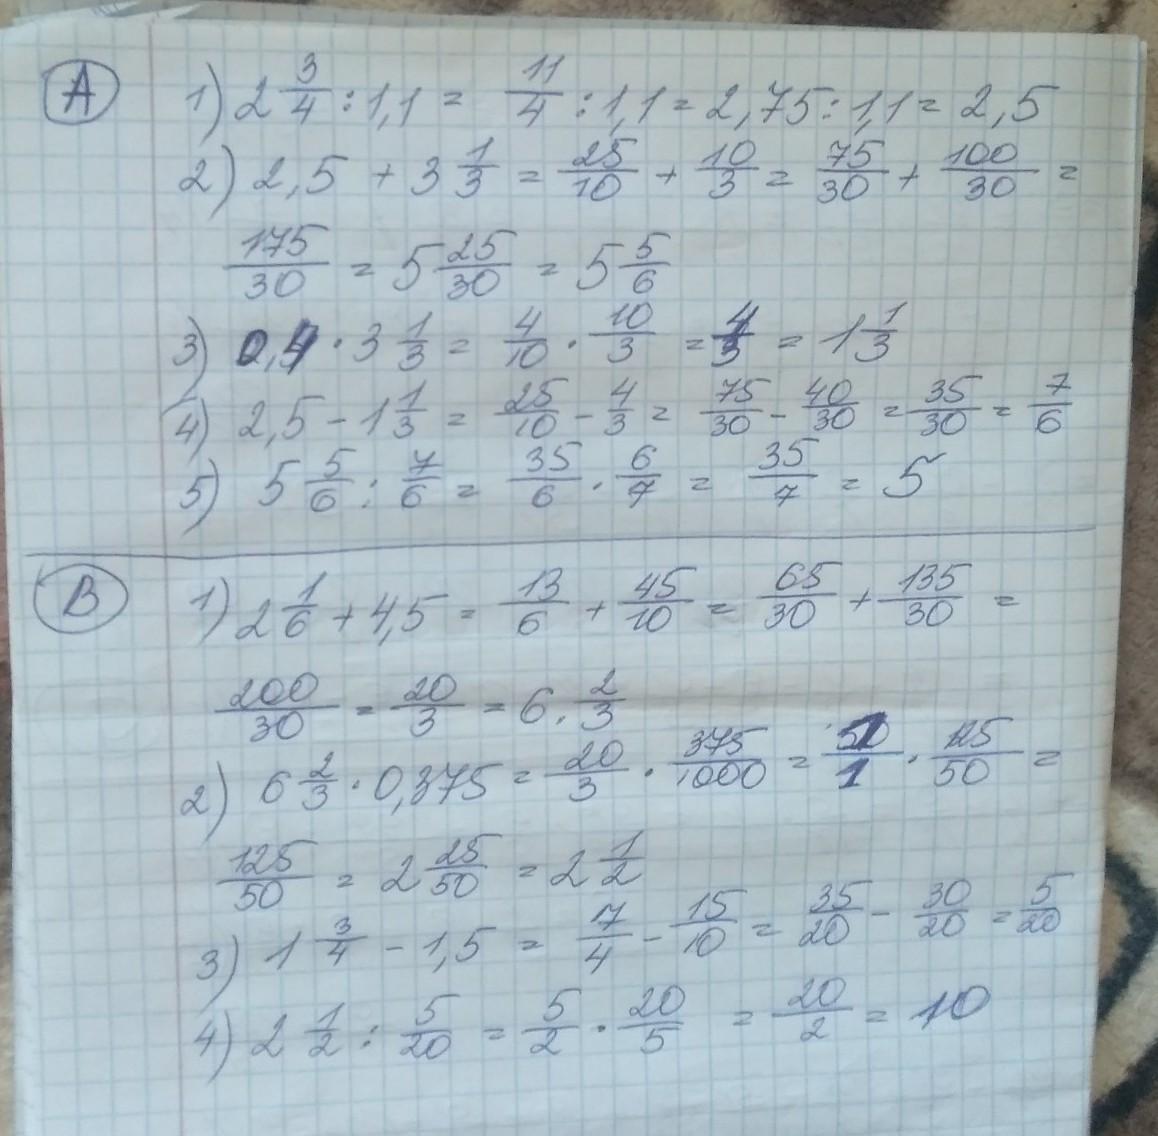 A
1) 2 3/4 : 1,1 = 11/4 : 1,1 = 2,75 : 1,1 = 2,5
2) 2,5 + 3 1/3 = 25/10 + 10/3 = 75/30 + 100/30 =
175/30 = 5 25/30 = 5 5/6
3) 0,4 · 3 1/3 = 4/10 · 10/3 = 4/3 = 1 1/3
4) 2,5 - 1 1/3 = 25/10 - 4/3 = 75/30 - 40/30 = 35/30 = 7/6
5) 5 5/6 : 7/6 = 35/6 · 6/7 = 35/7 = 5
B
1) 2 1/6 + 4,5 = 13/6 + 45/10 = 65/30 + 135/30 =
200/30 = 20/3 = 6 . 2/3
2) 6 2/3 · 0,375 = 20/3 · 375/1000 = 1/1 · 125/50 =
125/50 = 2 25/50 = 2 1/2
3) 1 3/4 - 1,5 = 7/4 - 15/10 = 35/20 - 30/20 = 5/20
4) 2 1/2 : 5/20 = 5/2 · 20/5 = 20/2 = 10